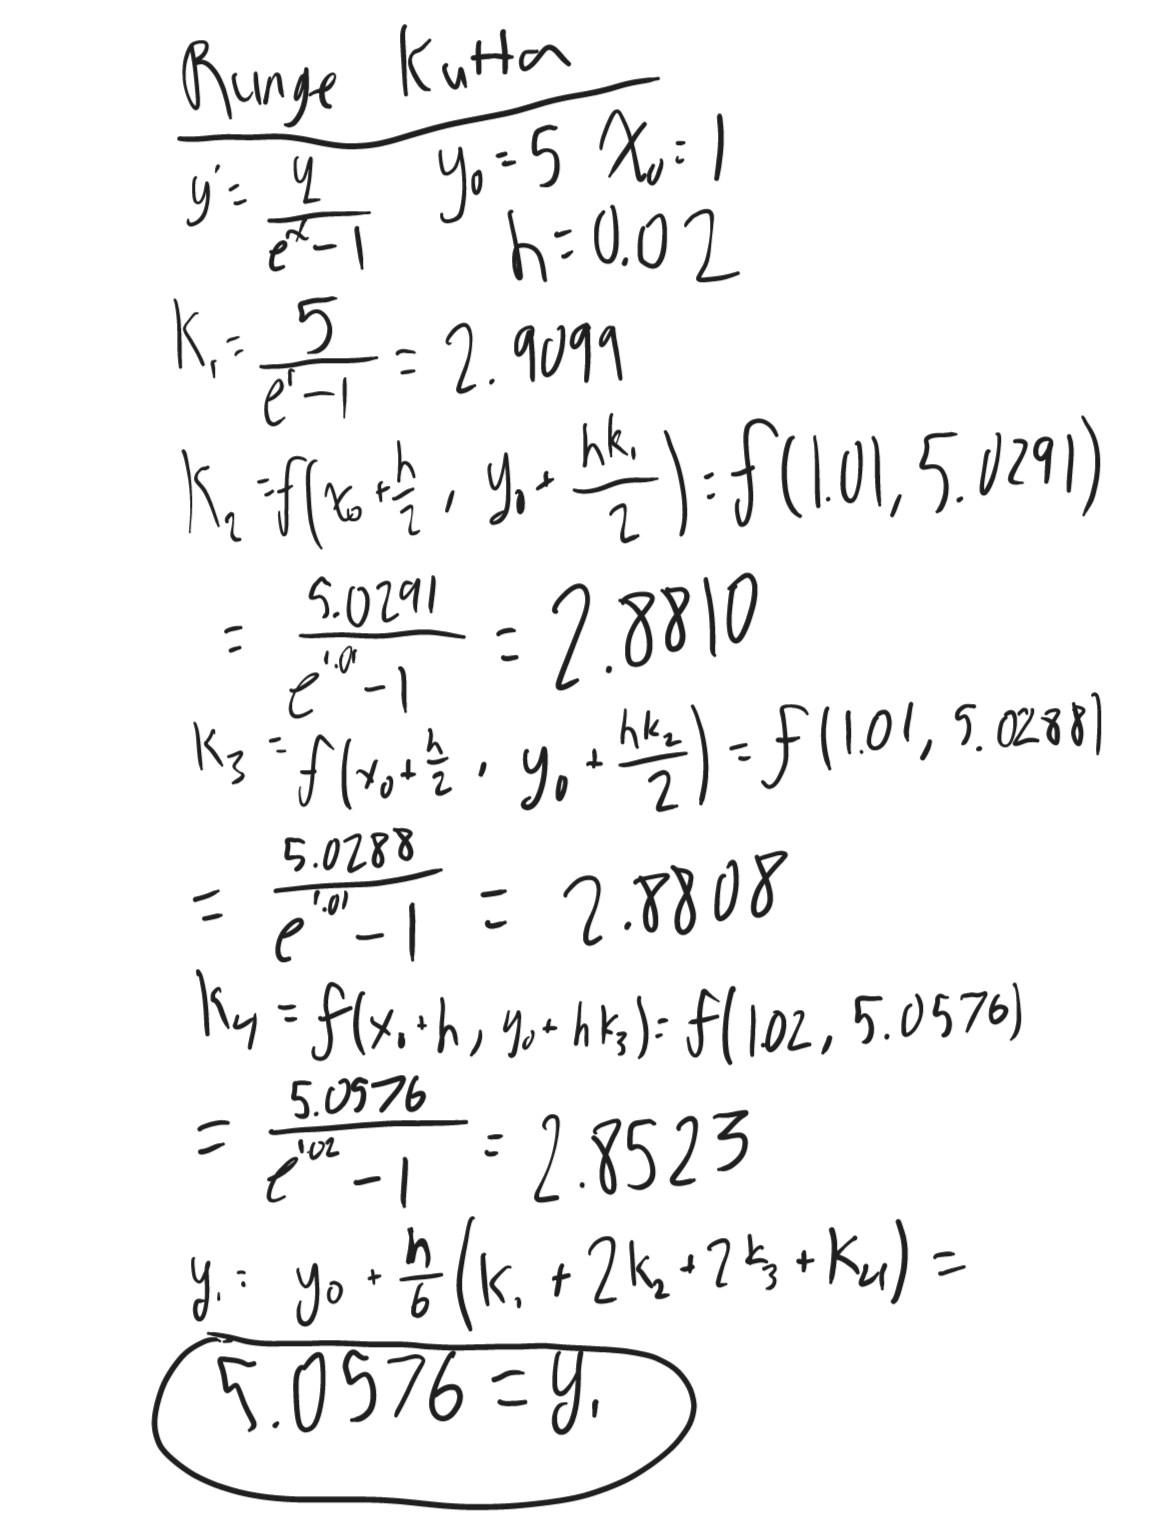 Runge Kutta
y' = y/(e^x - 1) y₀ = 5 x₀ = 1
h = 0.02
K₁ = 5/(e^1 - 1) = 2.9099
K₂ = f(x₀ + h/2, y₀ + hk₁/2) = f(1.01, 5.0291)
= 5.0291/(e^1.01 - 1) = 2.8810
K₃ = f(x₀ + h/2, y₀ + hk₂/2) = f(1.01, 5.0288)
= 5.0288/(e^1.01 - 1) = 2.8808
K₄ = f(x₀ + h, y₀ + hk₃) = f(1.02, 5.0576)
= 5.0576/(e^1.02 - 1) = 2.8523
y₁ = y₀ + h/6 (k₁ + 2k₂ + 2k₃ + K₄) =
5.0576 = y₁